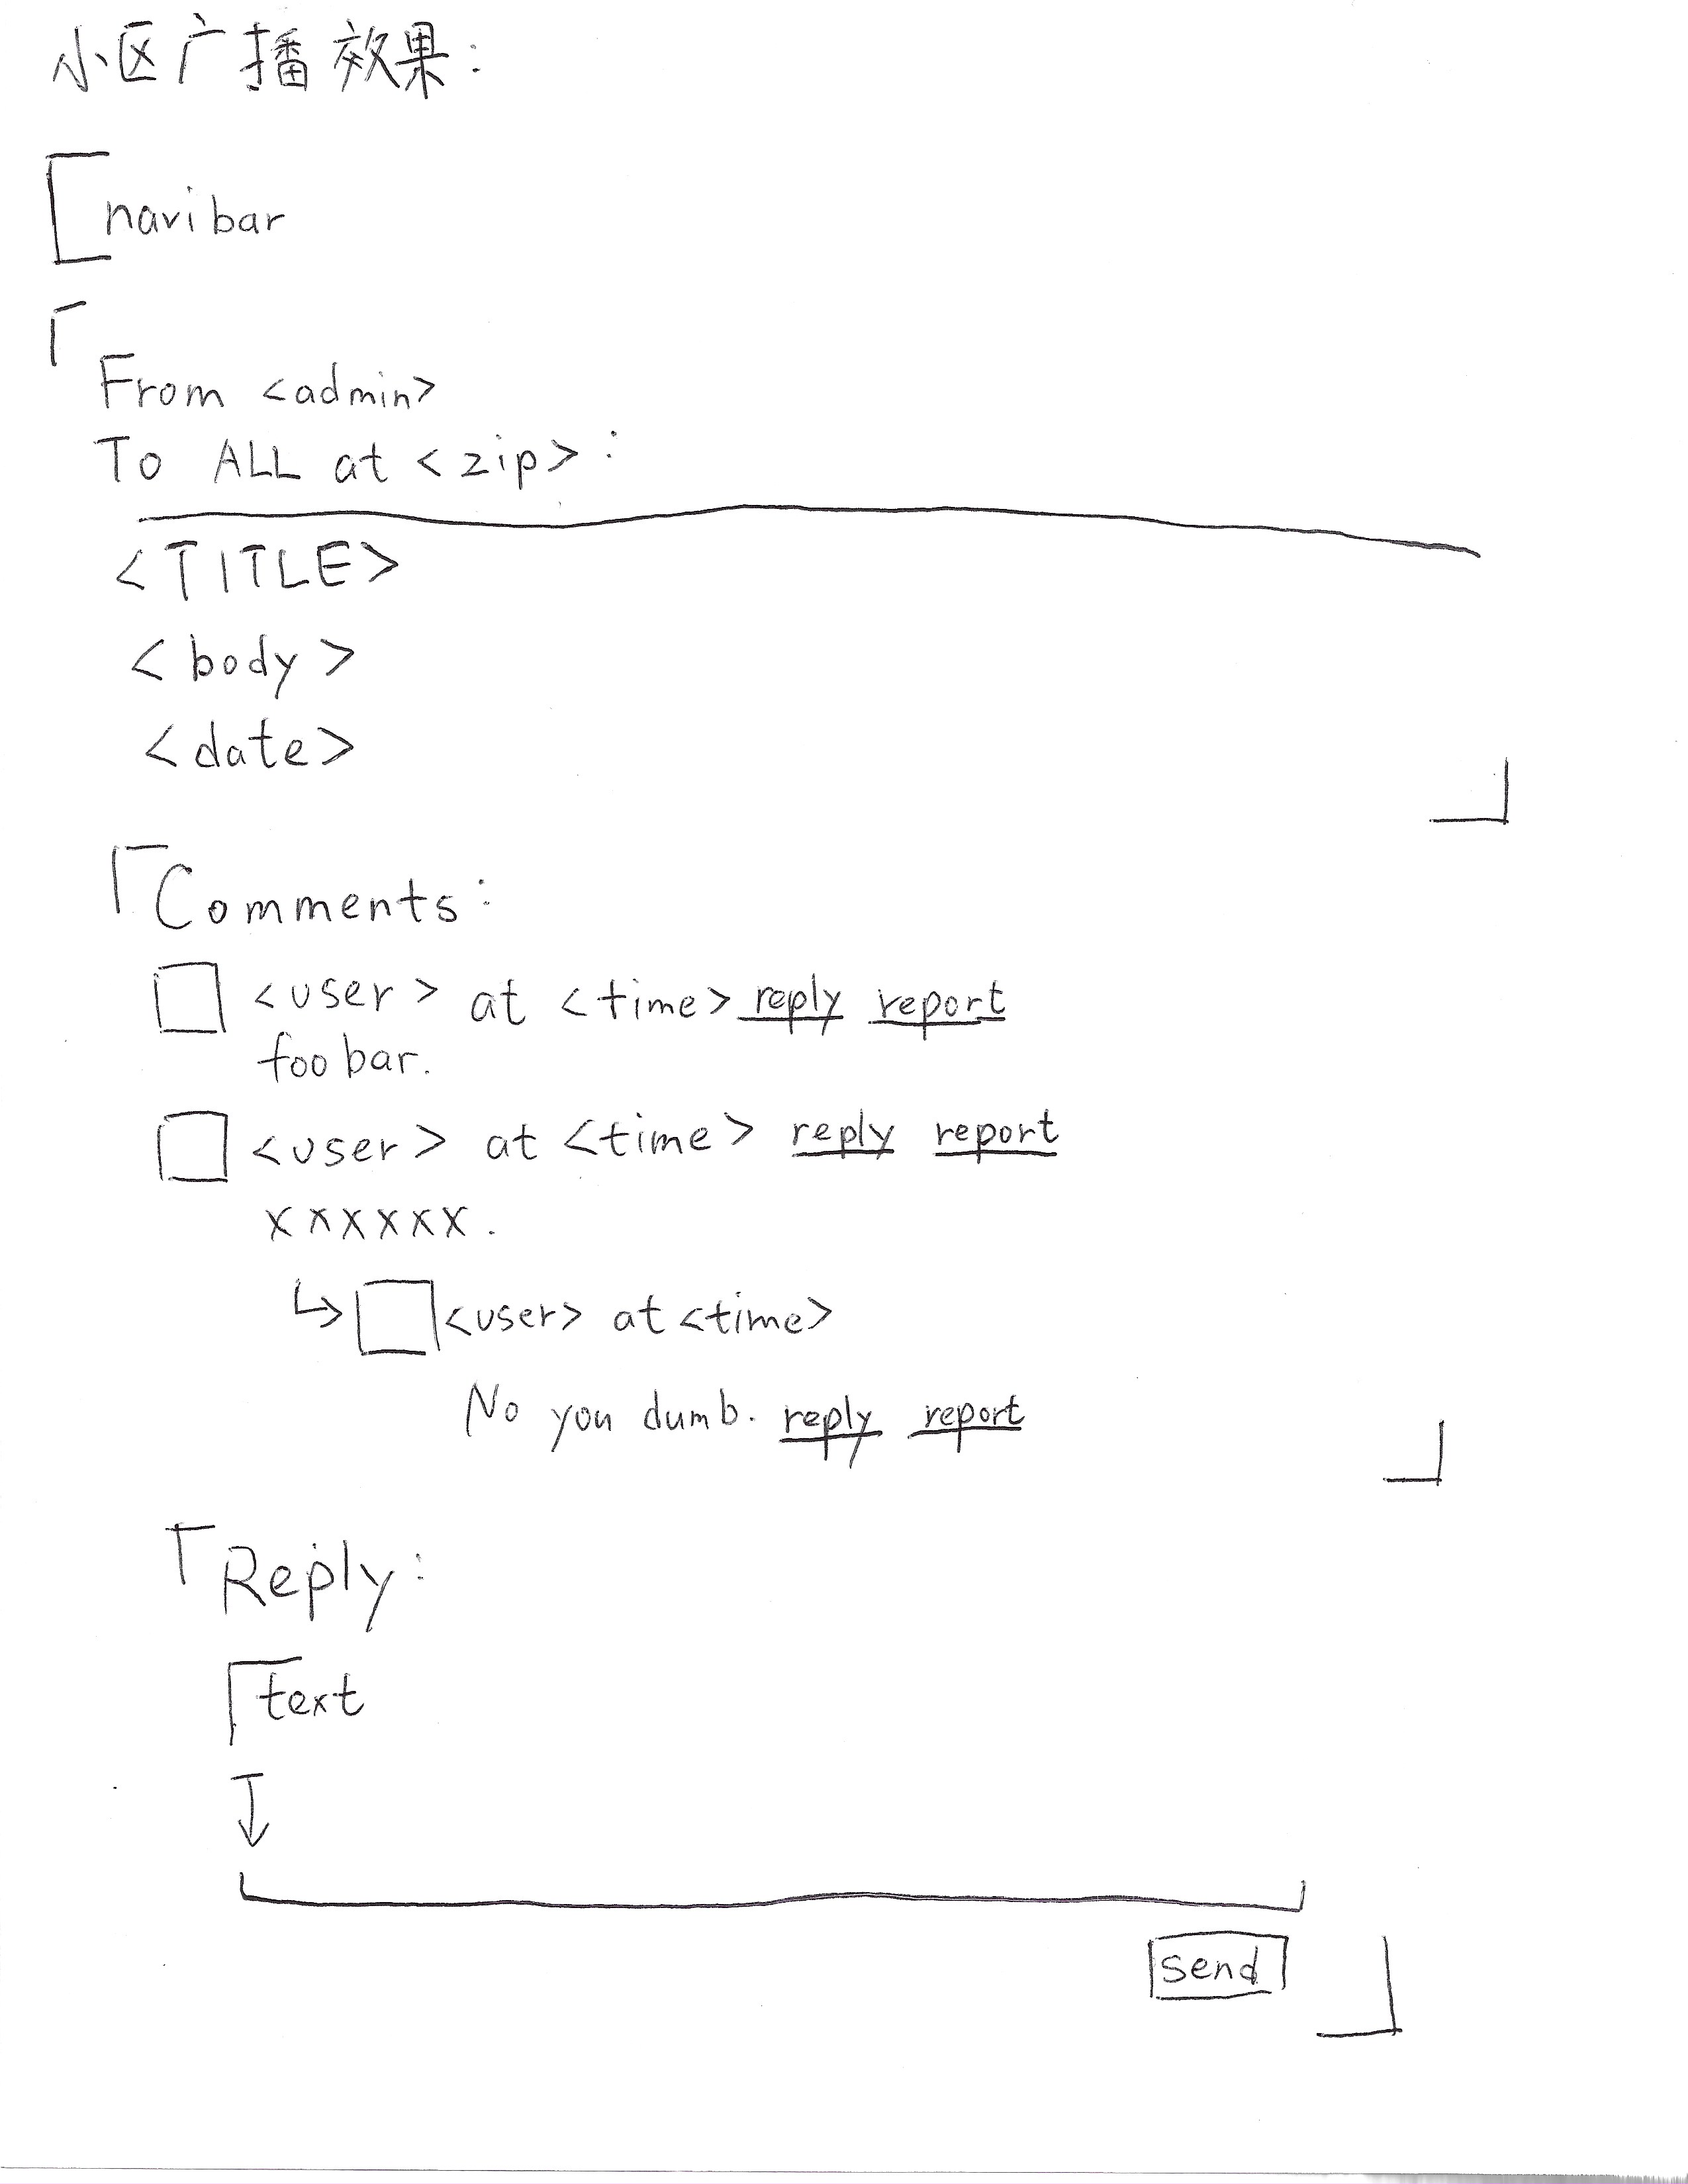 小区广播效果:
navibar
From <admin>
To ALL at <zip>:
<TITLE>
<body>
<date>
Comments:
<user> at <time> reply report
foobar.
<user> at <time> reply report
xxxxxx.
<user> at <time>
No you dumb. reply report
Reply:
text
send